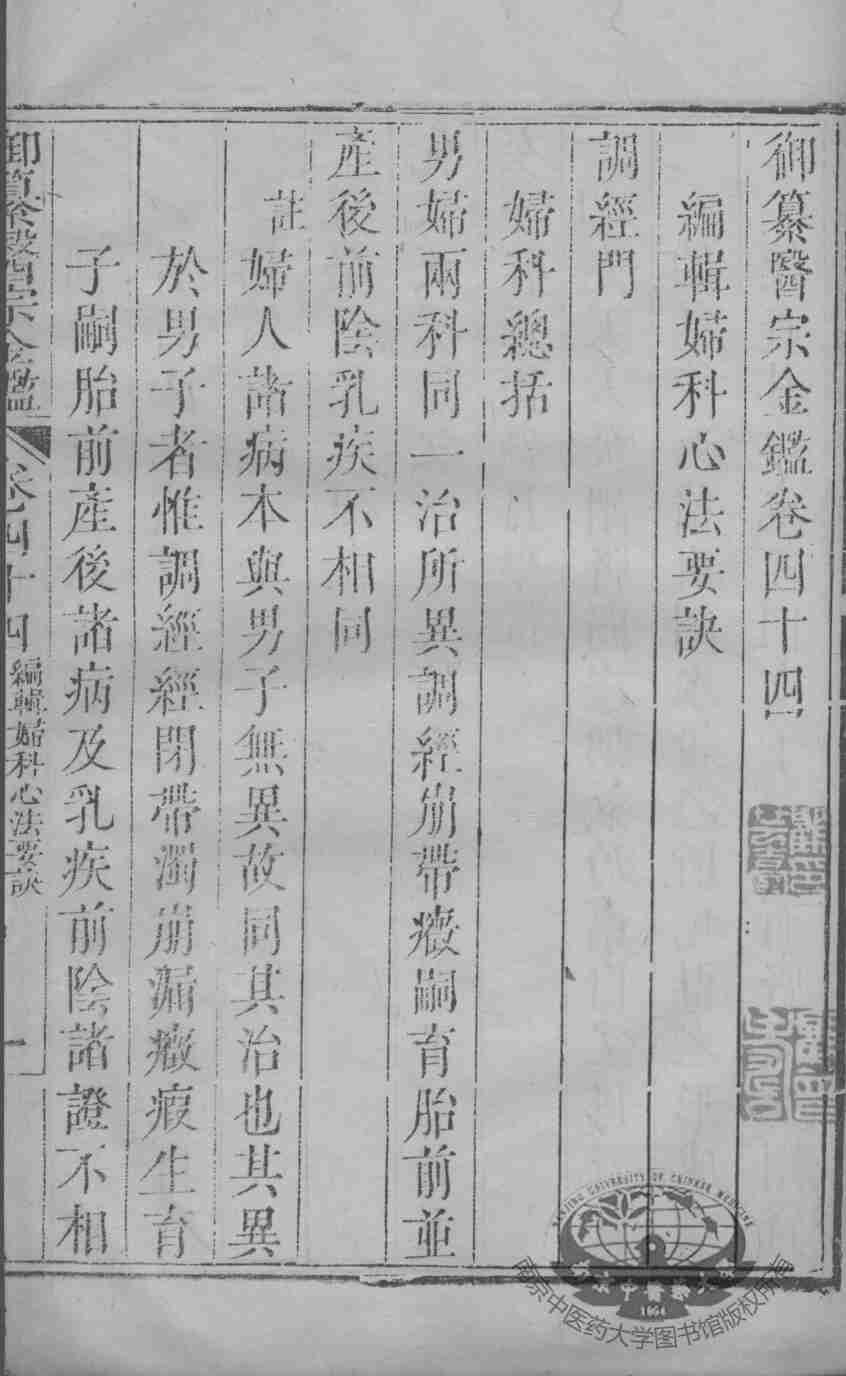 御纂醫宗金鑑卷四十四
編輯婦科心法要訣
調經門
婦科總括
男婦兩科同一治所異調經崩帶癥嗣育胎前並
產後前陰乳疾不相同
註婦人諸病本與男子無異故同其治也其異
於男子者惟調經經閉帶濁崩漏癥瘕生育
子嗣胎前產後諸病及乳疾前陰諸證不相
御纂醫宗金鑑 卷四十四 編輯婦科心法要訣 一
NANJING UNIVERSITY OF CHINESE MEDICINE
南京中醫藥大學
1954
南京中医药大学图书馆版权所有